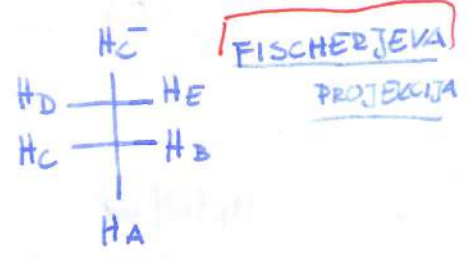 HC⁻
FISCHERJEVA
PROJEKCIJA
HD HE
HC HB
HA